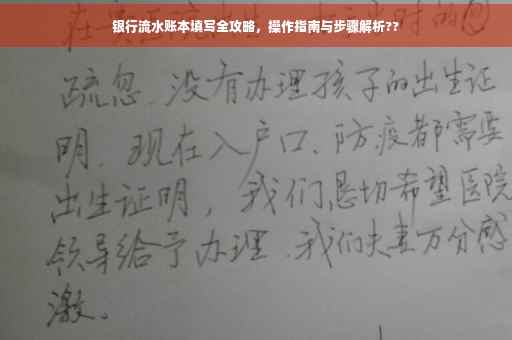 银行流水账本填写全攻略，操作指南与步骤解析??
疏忽、没有办理孩子的出生证
明、现在入户口、防疫都需要
出生证明，我们恳切希望医院
领导给予办理、我们夫妻万分感
激。